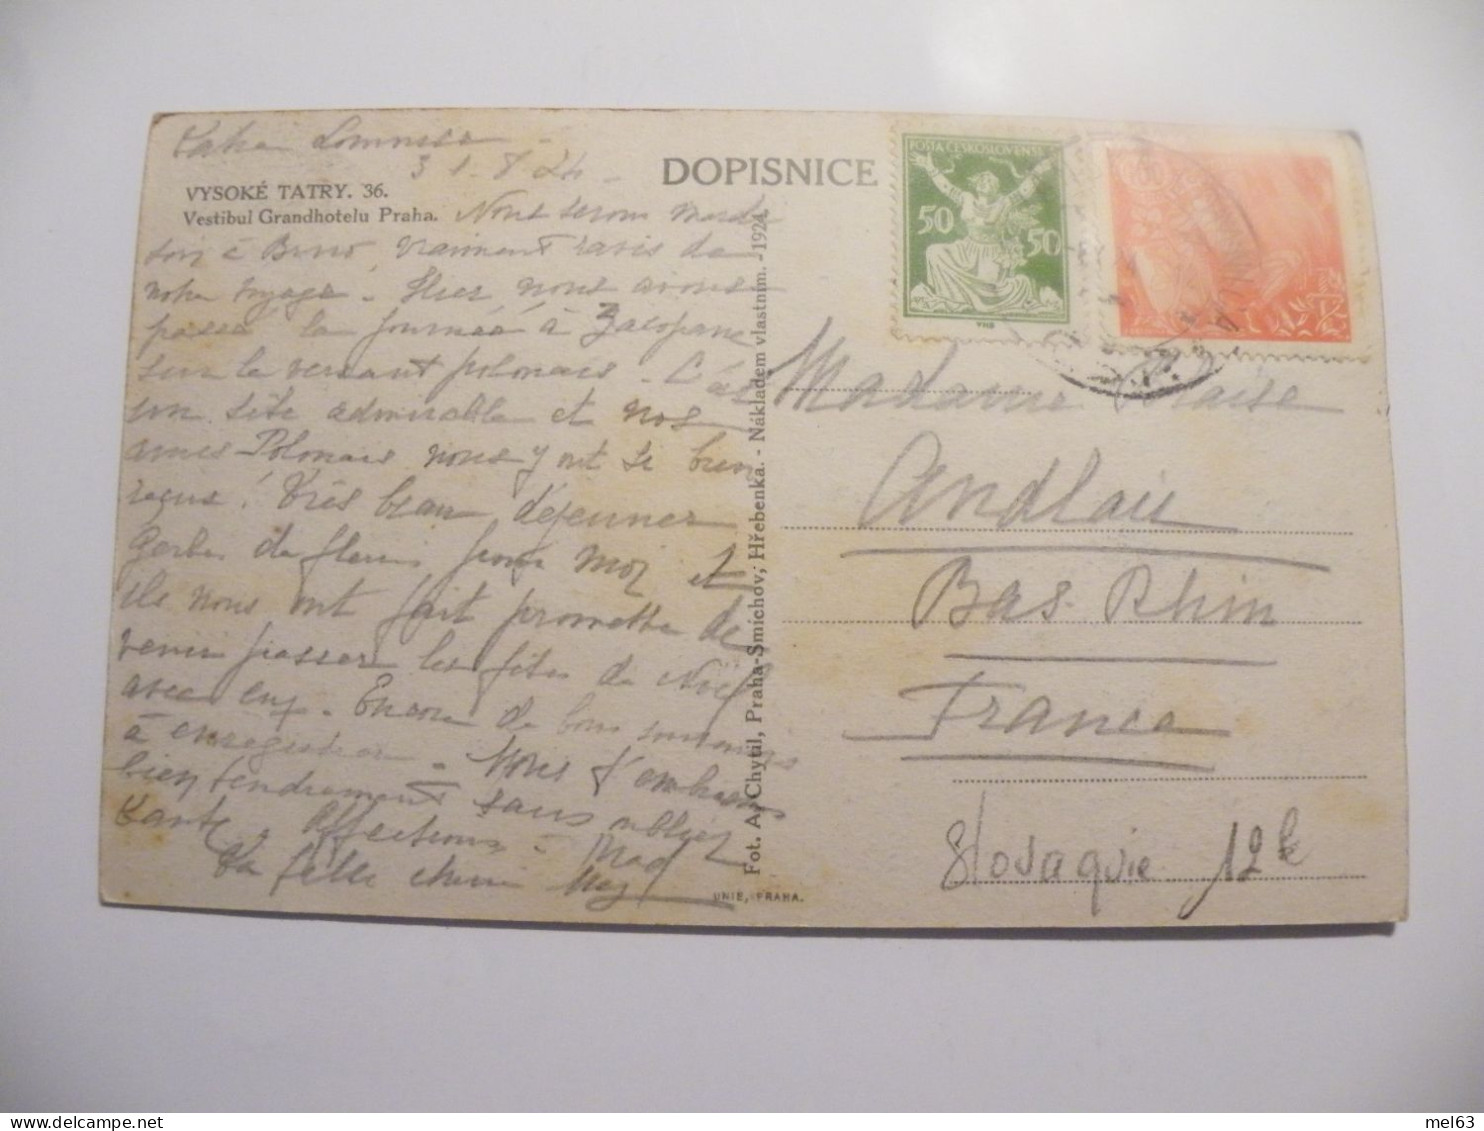 Lomnica
31.8.24
VYSOKÉ TATRY. 36.
Vestibul Grandhotelu Praha.
DOPISNICE
POŠTA ČESKOSLOVENSKÁ
50 50
Nous serons mardi
soir à Brno, vraiment ravis de
notre voyage. Hier nous avons
passé la journée à Zacopane
sur le versant polonais. C'est
un site admirable et nos
amis Polonais nous y ont si bien
reçus! Très beau déjeuner
Gerbes de fleurs pour moi et
ils nous ont fait promettre de
venir passer les fêtes de Noël
avec eux. Encore de bons souvenirs
à enregistrer. Nous t'embrassons
bien tendrement sans oublier
Tante. Affections.
Ta fille chérie Mad
Fot. A. Chytil, Praha-Smíchov, Hřebenka. - Nákladem vlastním. - 1924.
UNIE, PRAHA.
Madame Blaise
Andlau
Bas-Rhin
France
Slovaquie 12k
mel63